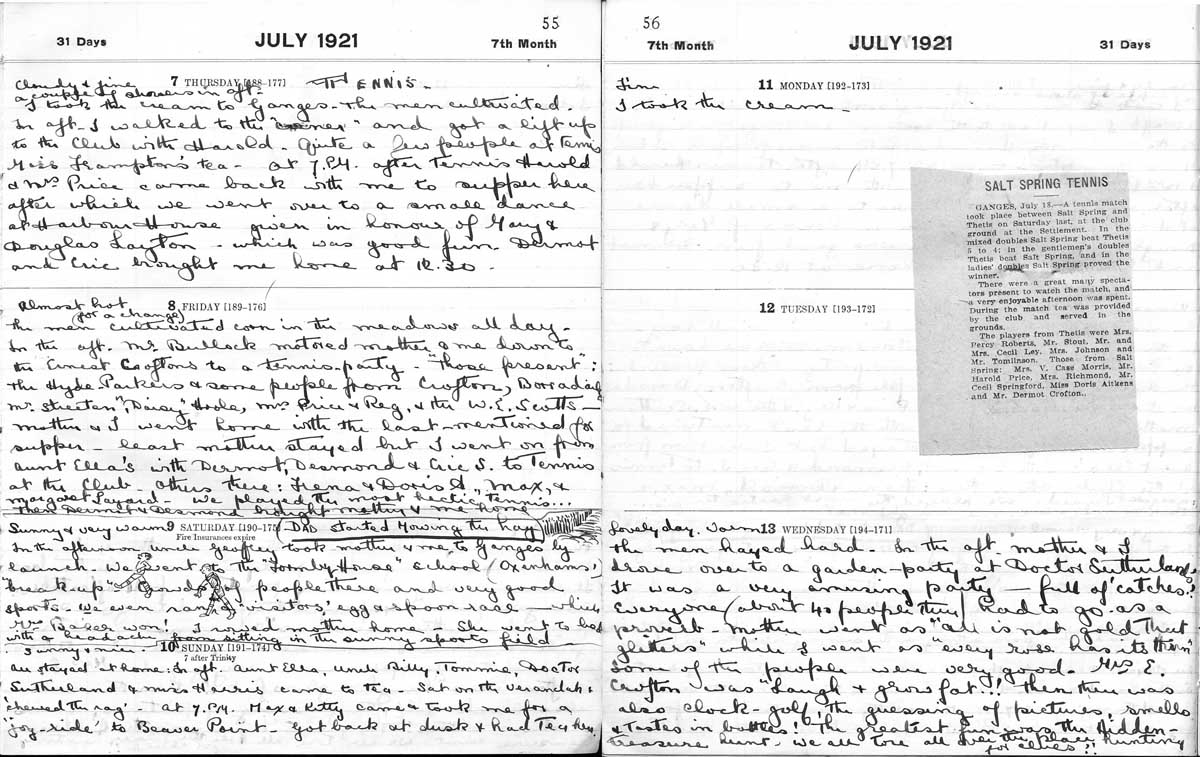 55
31 Days JULY 1921 7th Month
Cloudy & fine 7 THURSDAY [188-177] TENNIS.
a couple of showers in aft.
I took the cream to Ganges. The men cultivated.
In aft. I walked to the "corner" and got a lift up
to the Club with Harold. Quite a few people at Tennis
Miss Frampton's tea. At 7 P.M. after Tennis Harold
& Mrs Price came back with me to supper here
after which we went over to a small dance
at Harbour House given in honour of Mary &
Douglas Layton - which was good fun. Dermot
and Eric brought me home at 12.30.
Almost hot 8 FRIDAY [189-176]
(for a change)
The men cultivated corn in the meadows all day.
In the aft. Mr Bullock motored mother & me down to
the Ernest Croftons to a tennis-party. "Those present":
The Hyde Parkers & some people from Crofton, Borradaile
Mr Streeten, "Daisy" Hoole, Mrs Price & Reg, & the W.E. Scotts -
Mother & I went home with the last-mentioned for
supper - least mother stayed but I went on from
Aunt Ella's with Dermot, Desmond & Eric S. to Tennis
at the Club. Others there: Irena & Doris A, Max, &
Margaret Layard - we played the most hectic tennis...
Then Dermot & Desmond brought mother & me home
Sunny & very warm 9 SATURDAY [190-175] (DAD started mowing the hay)
Fire Insurances expire
In the afternoon uncle Geoffrey took mother & me to Ganges by
launch. We went to the "Formby House" School (Oxenhams')
"break-up" Crowds of people there and very good
sports. We even ran a "visitors' egg & spoon race - which
Mrs Baker won! I rowed mother home - She went to bed
with a headache from sitting in the sunny sports field
Sunny & nice. 10 SUNDAY [191-174]
7 after Trinity
All stayed at home. In aft. Aunt Ella, Uncle Billy, Tommie, Doctor
Sutherland & Miss Harris came to tea - Sat on the verandah &
'chewed the rag'. At 7 P.M. Max & Kitty came & took me for a
'joy-ride' to Beaver Point - Got back at dusk & had Tea & Hay
56
7th Month JULY 1921 31 Days
Fine 11 MONDAY [192-173]
I took the cream -
SALT SPRING TENNIS
GANGES, July 18.—A tennis match
took place between Salt Spring and
Thetis on Saturday last, at the club
ground at the Settlement. In the
mixed doubles Salt Spring beat Thetis
5 to 4; in the gentlemen's doubles
Thetis beat Salt Spring, and in the
ladies' doubles Salt Spring proved the
winner.
There were a great many specta-
tors present to watch the match, and
a very enjoyable afternoon was spent.
During the match tea was provided
by the club and served in the
grounds.
The players from Thetis were Mrs.
Percy Roberts, Mr. Stout, Mr. and
Mrs. Cecil Ley, Mrs. Johnson and
Mr. Tomlinson. Those from Salt
Spring: Mrs. V. Case Morris, Mr.
Harold Price, Mrs. Richmond, Mr.
Cecil Springford, Miss Doris Aitkens
and Mr. Dermot Crofton.
12 TUESDAY [193-172]
Lovely day. Warm 13 WEDNESDAY [194-171]
The men hayed hard. In the aft. mother & I
drove over to a garden-party at Doctor Sutherland's
It was a very amusing party - full of 'catches'!
Everyone (about 40 people there) had to go as a
proverb. Mother went as "all is not gold that
glitters" while I went as "every rose has its thorn"
Some of the people were very good. Mrs E.
Crofton was "Laugh & grow fat"!! Then there was
also clock-golf the guessing of pictures, smells
& tastes in bottles! The greatest fun was the Hidden-
treasure hunt - we all tore all over the place hunting
for clues!!